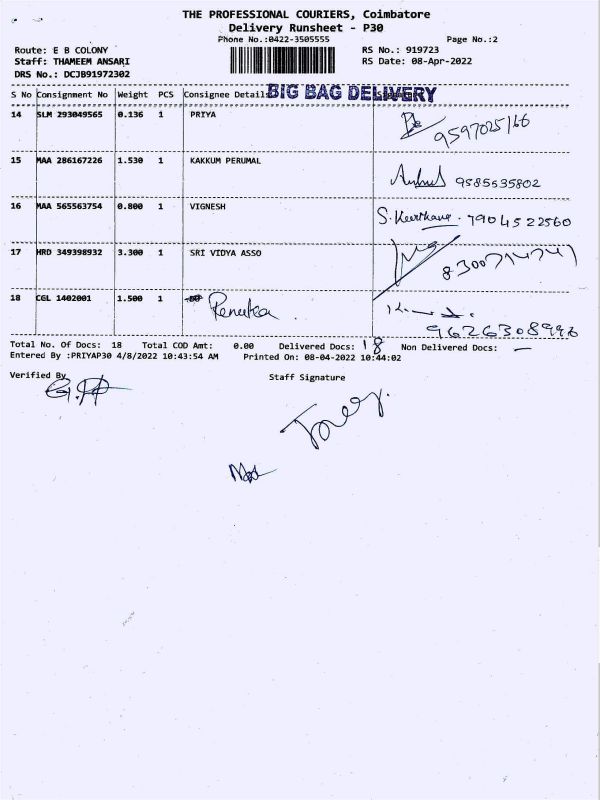 THE PROFESSIONAL COURIERS, Coimbatore
Delivery Runsheet - P30
Phone No.:0422-3505555 Page No.:2
Route: E B COLONY RS No.: 919723
Staff: THAMEEM ANSARI RS Date: 08-Apr-2022
DRS No.: DCJB91972302
S No Consignment No Weight PCS Consignee Details BIG BAG DELIVERY
14 SLM 293049565 0.136 1 PRIYA 9597025166
15 MAA 286167226 1.530 1 KAKKUM PERUMAL 9585535802
16 MAA 565563754 0.800 1 VIGNESH S. Keerthana . 7904522560
17 HRD 349398932 3.300 1 SRI VIDYA ASSO 8300714741
18 CGL 1402001 1.500 1 Renuka .
9626308996
Total No. Of Docs: 18 Total COD Amt: 0.00 Delivered Docs: 18 Non Delivered Docs: —
Entered By :PRIYAP30 4/8/2022 10:43:54 AM Printed On: 08-04-2022 10:44:02
Verified By Staff Signature